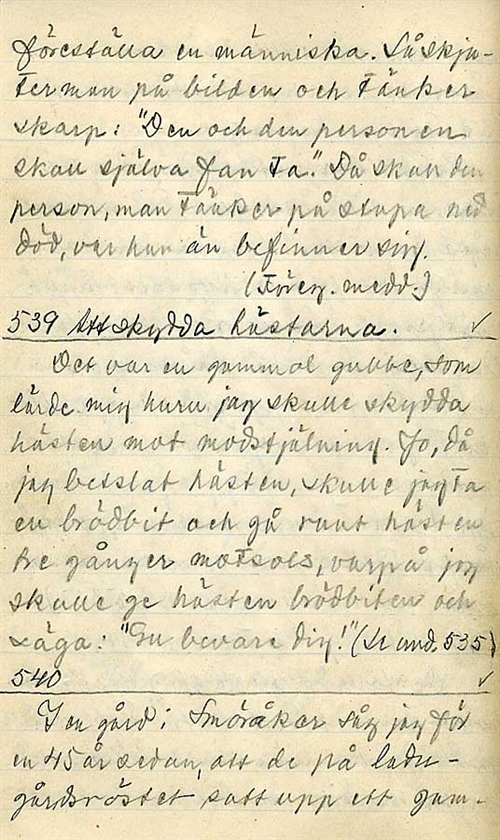 föreställa en människa. Så skju-
ter man på bilden och tänker
skarp: "Den och den personen
skall själva fan ta." Då skall den
person, man tänker på stupa ned
död, var han än befinner sig.
(Föreg. medd.)
539 Att skydda hästarna. ✓
Det var en gammal gubbe, som
lärde mig huru jag skulle skydda
hästen mot modstjälning. Jo, då
jag betslat hästen, skulle jag ta
en brödbit och gå runt hästen
tre gånger motsols, varpå jag
skulle ge hästen brödbiten och
säga: "Gu bevare dig!" (Se und. 535)
540 ✓
I en gård i Smöråker såg jag för
en 45 år sedan, att de på ladu-
gårdsröstet satt upp ett gam-